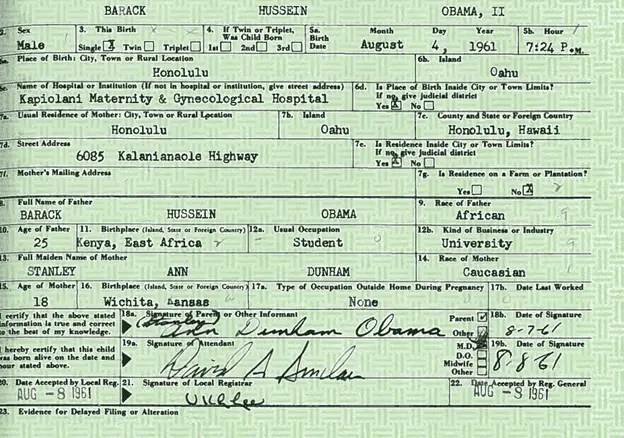 BARACK HUSSEIN OBAMA, II
2. Sex 3. This Birth 4. If Twin or Triplet, Was Child Born 5a. Birth Date Month Day Year 5b. Hour
Male Single X Twin Triplet 1st 2nd 3rd August 4, 1961 7:24 P.M.
6a. Place of Birth: City, Town or Rural Location 6b. Island
Honolulu Oahu
6c. Name of Hospital or Institution (If not in hospital or institution, give street address) 6d. Is Place of Birth Inside City or Town Limits? If no, give judicial district
Kapiolani Maternity & Gynecological Hospital Yes X No
7a. Usual Residence of Mother: City, Town or Rural Location 7b. Island 7c. County and State or Foreign Country
Honolulu Oahu Honolulu, Hawaii
7d. Street Address 7e. Is Residence Inside City or Town Limits? If no, give judicial district
6085 Kalanianaole Highway Yes X No
7f. Mother's Mailing Address 7g. Is Residence on a Farm or Plantation?
Yes No X
8. Full Name of Father 9. Race of Father
BARACK HUSSEIN OBAMA African
10. Age of Father 11. Birthplace (Island, State or Foreign Country) 12a. Usual Occupation 12b. Kind of Business or Industry
25 Kenya, East Africa Student University
13. Full Maiden Name of Mother 14. Race of Mother
STANLEY ANN DUNHAM Caucasian
15. Age of Mother 16. Birthplace (Island, State or Foreign Country) 17a. Type of Occupation Outside Home During Pregnancy 17b. Date Last Worked
18 Wichita, Kansas None
I certify that the above stated information is true and correct to the best of my knowledge. 18a. Signature of Parent or Other Informant Parent Other 18b. Date of Signature
(Stanley) Ann Dunham Obama 8-7-61
I hereby certify that this child was born alive on the date and hour stated above. 19a. Signature of Attendant M.D. D.O. Midwife Other 19b. Date of Signature
David A Sinclair 8-8-61
20. Date Accepted by Local Reg. 21. Signature of Local Registrar 22. Date Accepted by Reg. General
AUG -8 1961 AUG -8 1961
23. Evidence for Delayed Filing or Alteration